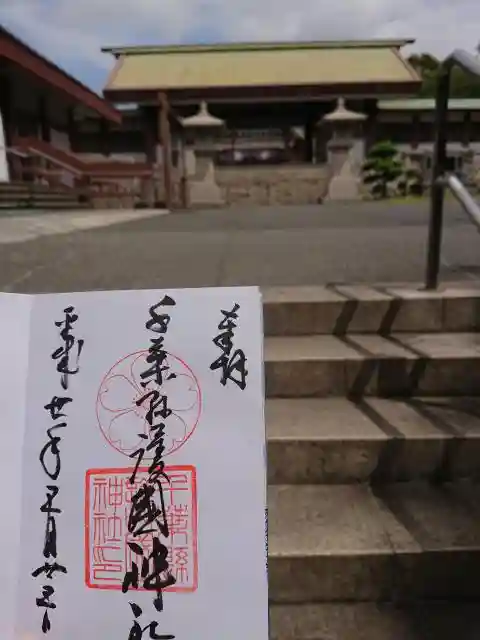 奉拝
千葉縣護國神社
平成廿年五月廿五日
千葉縣
護國
神社印